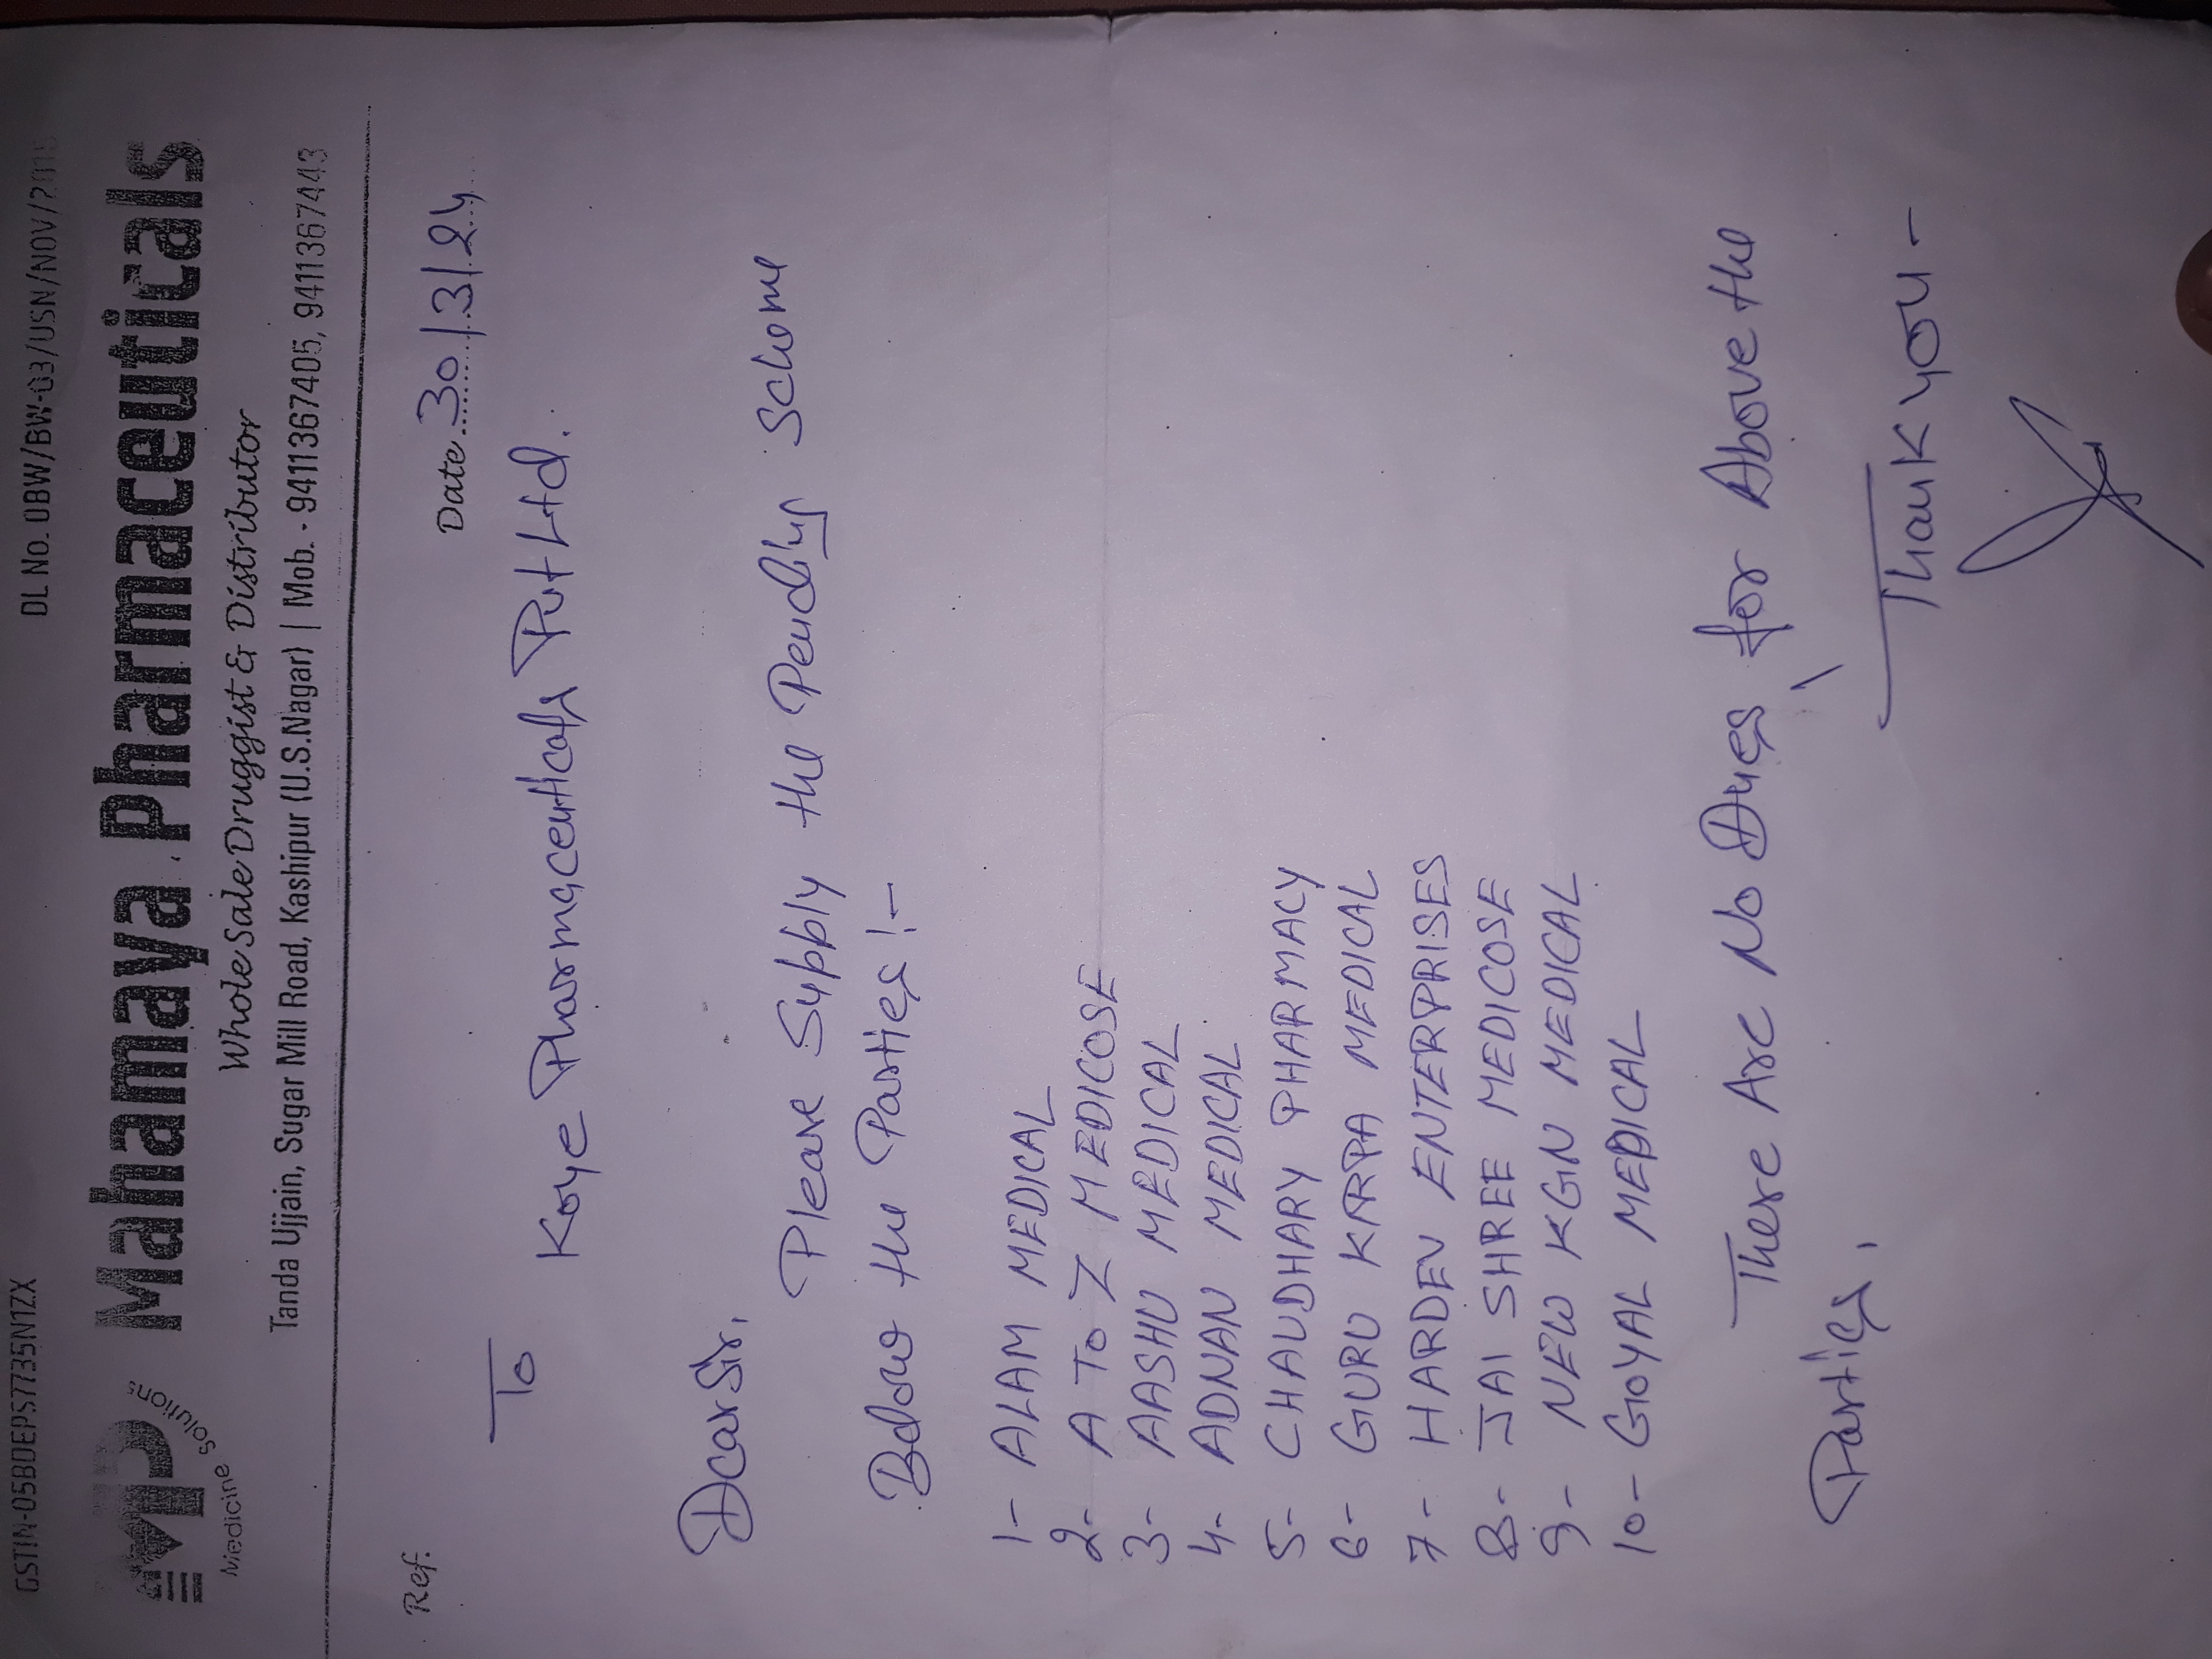 GSTIN-05BDEPS7735N1ZX DL No. OBW/BW-03/USN/NOV/2015
MP Mahamaya Pharmaceuticals
Medicine Solution
Whole Sale Druggist & Distributor
Tanda Ujjain, Sugar Mill Road, Kashipur (U.S.Nagar) | Mob. - 9411367405, 9411367443
Ref. Date 30/3/24
To
Koye Pharmaceuticals Pvt Ltd.
Dear Sir,
Please Supply the Pending Scheme
Below the Parties!-
1- ALAM MEDICAL
2- A To Z MEDICOSE
3- AASHU MEDICAL
4- ADNAN MEDICAL
5- CHAUDHARY PHARMACY
6- GURU KARPA MEDICAL
7- HARDEV ENTERPRISES
8- JAI SHREE MEDICOSE
9- NEW KGN MEDICAL
10- GOYAL MEDICAL
There Are No Dues for Above the
Parties,
Thank you -